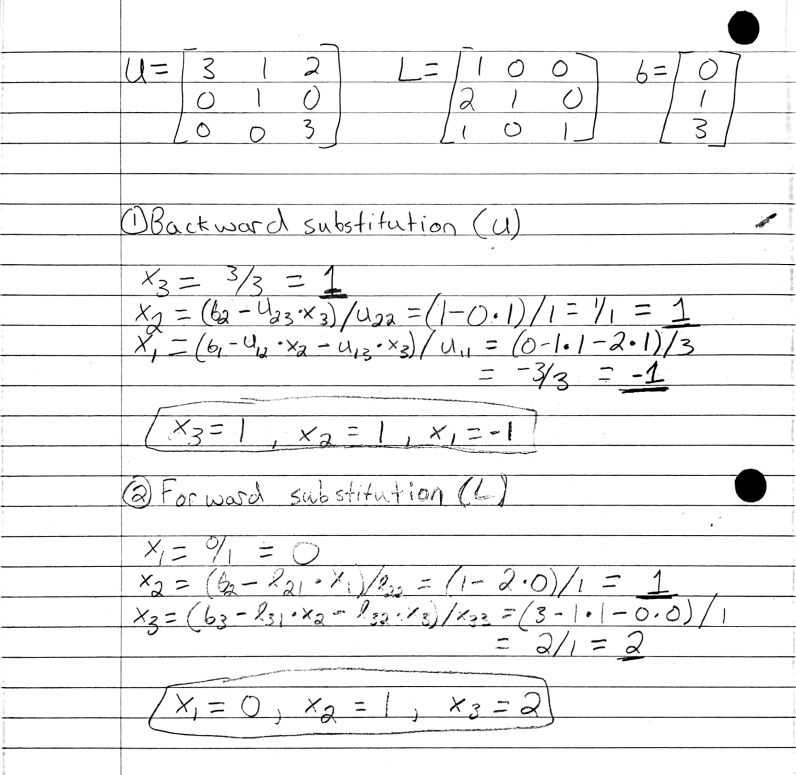 U = [3 1 2; 0 1 0; 0 0 3] L = [1 0 0; 2 1 0; 1 0 1] b = [0; 1; 3]
① Backward substitution (U)
x₃ = 3/3 = 1
x₂ = (b₂ - u₂₃·x₃)/u₂₂ = (1-0·1)/1 = 1/1 = 1
x₁ = (b₁ - u₁₂·x₂ - u₁₃·x₃)/u₁₁ = (0-1·1-2·1)/3
= -3/3 = -1
x₃ = 1, x₂ = 1, x₁ = -1
② Forward substitution (L)
x₁ = 0/1 = 0
x₂ = (b₂ - l₂₁·x₁)/l₂₂ = (1-2·0)/1 = 1
x₃ = (b₃ - l₃₁·x₂ - l₃₂·x₃)/x₃₃ = (3-1·1-0·0)/1
= 2/1 = 2
x₁ = 0, x₂ = 1, x₃ = 2